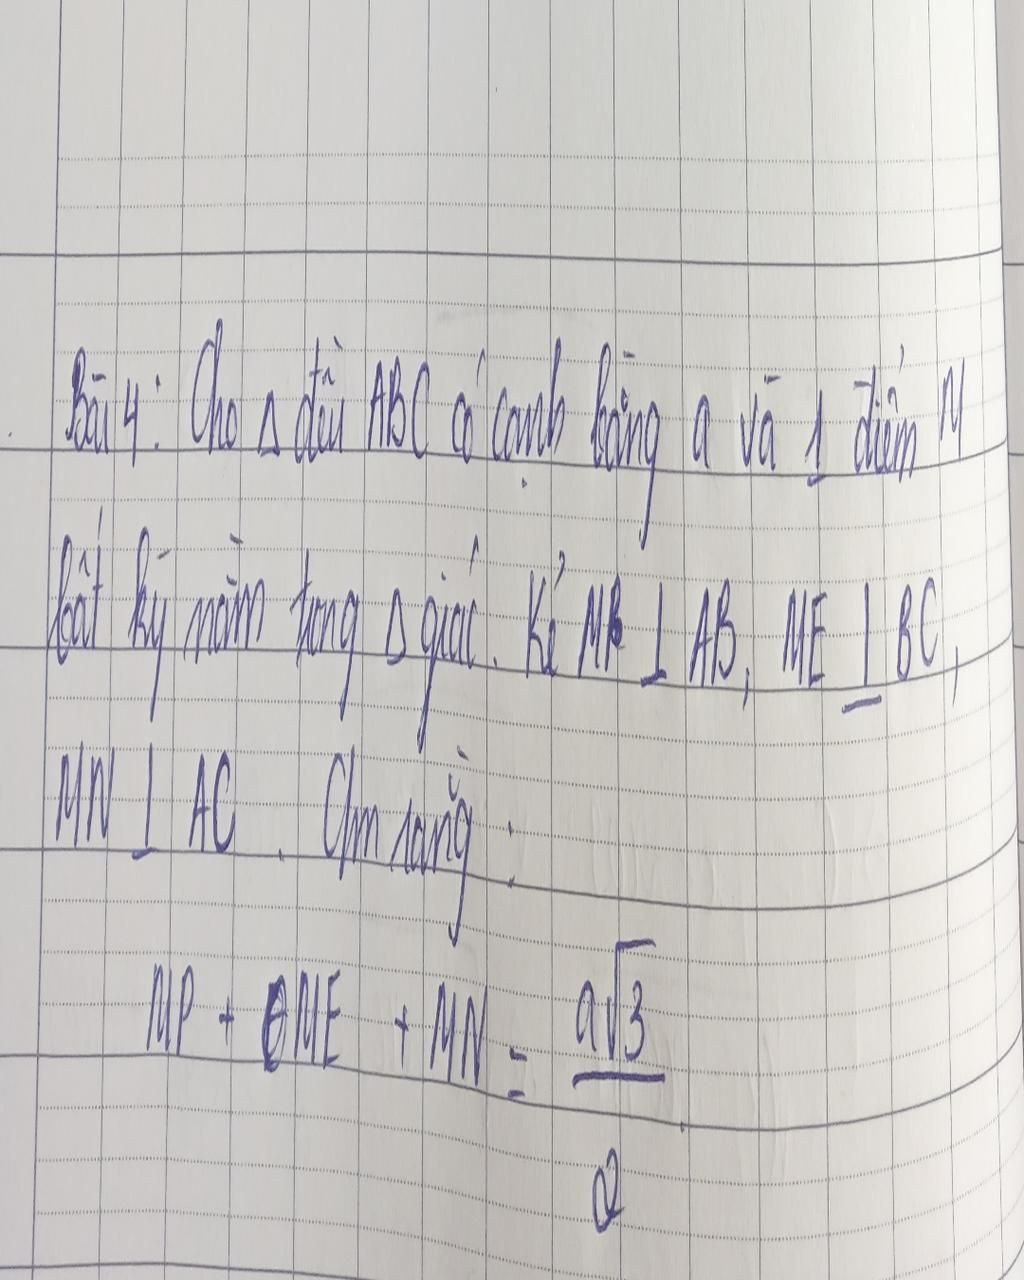 Bài 4: Cho Δ đều ABC có cạnh bằng a và 1 điểm M
bất kỳ nằm trong Δ giác. Kẻ MP ⊥ AB, ME ⊥ BC,
MN ⊥ AC. Cm rằng:
MP + ME + MN = a√3
2